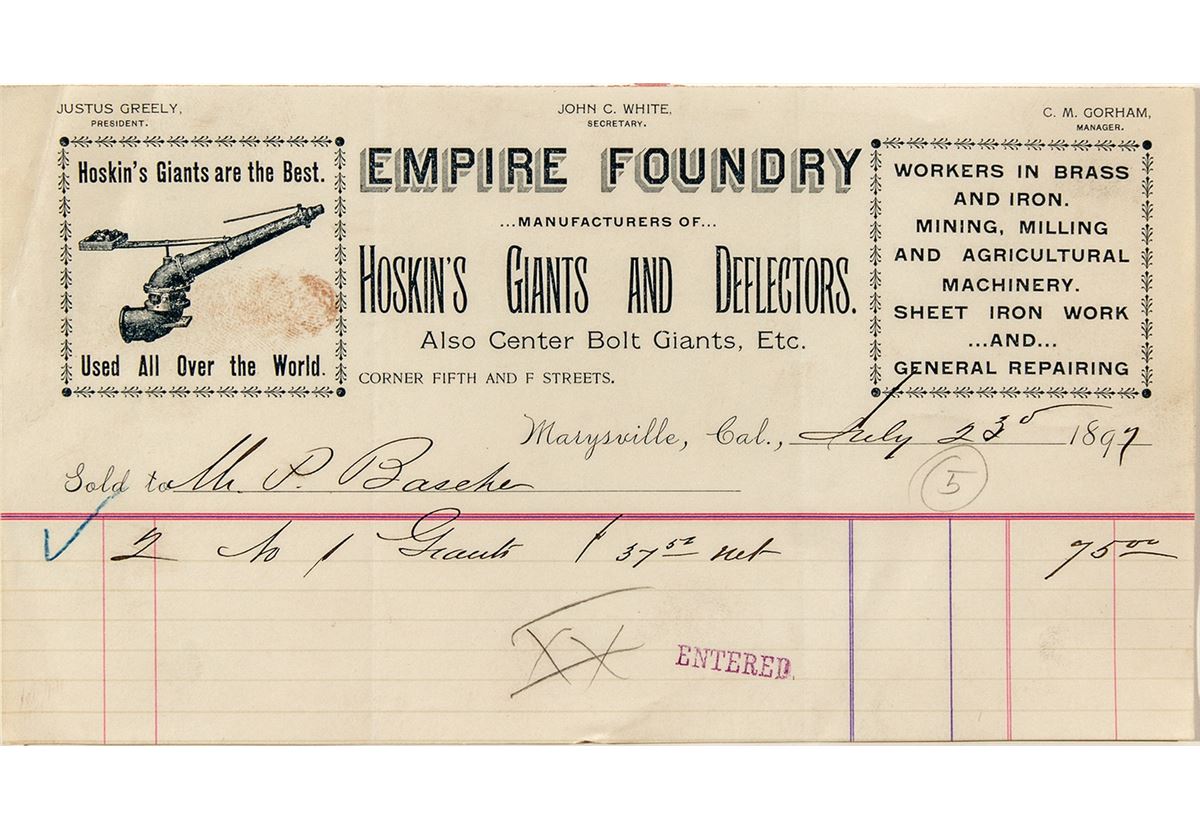 JUSTUS GREELY,
PRESIDENT.
JOHN C. WHITE,
SECRETARY.
C. M. GORHAM,
MANAGER.
Hoskin's Giants are the Best.
Used All Over the World.
EMPIRE FOUNDRY
...MANUFACTURERS OF...
HOSKIN'S GIANTS AND DEFLECTORS.
Also Center Bolt Giants, Etc.
CORNER FIFTH AND F STREETS.
WORKERS IN BRASS
AND IRON.
MINING, MILLING
AND AGRICULTURAL
MACHINERY.
SHEET IRON WORK
...AND...
GENERAL REPAIRING
Marysville, Cal., July 23d 1897
5
Sold to Mr. P. Basche
2 No 1 Giants 37.50 net 75.00
XX
ENTERED.